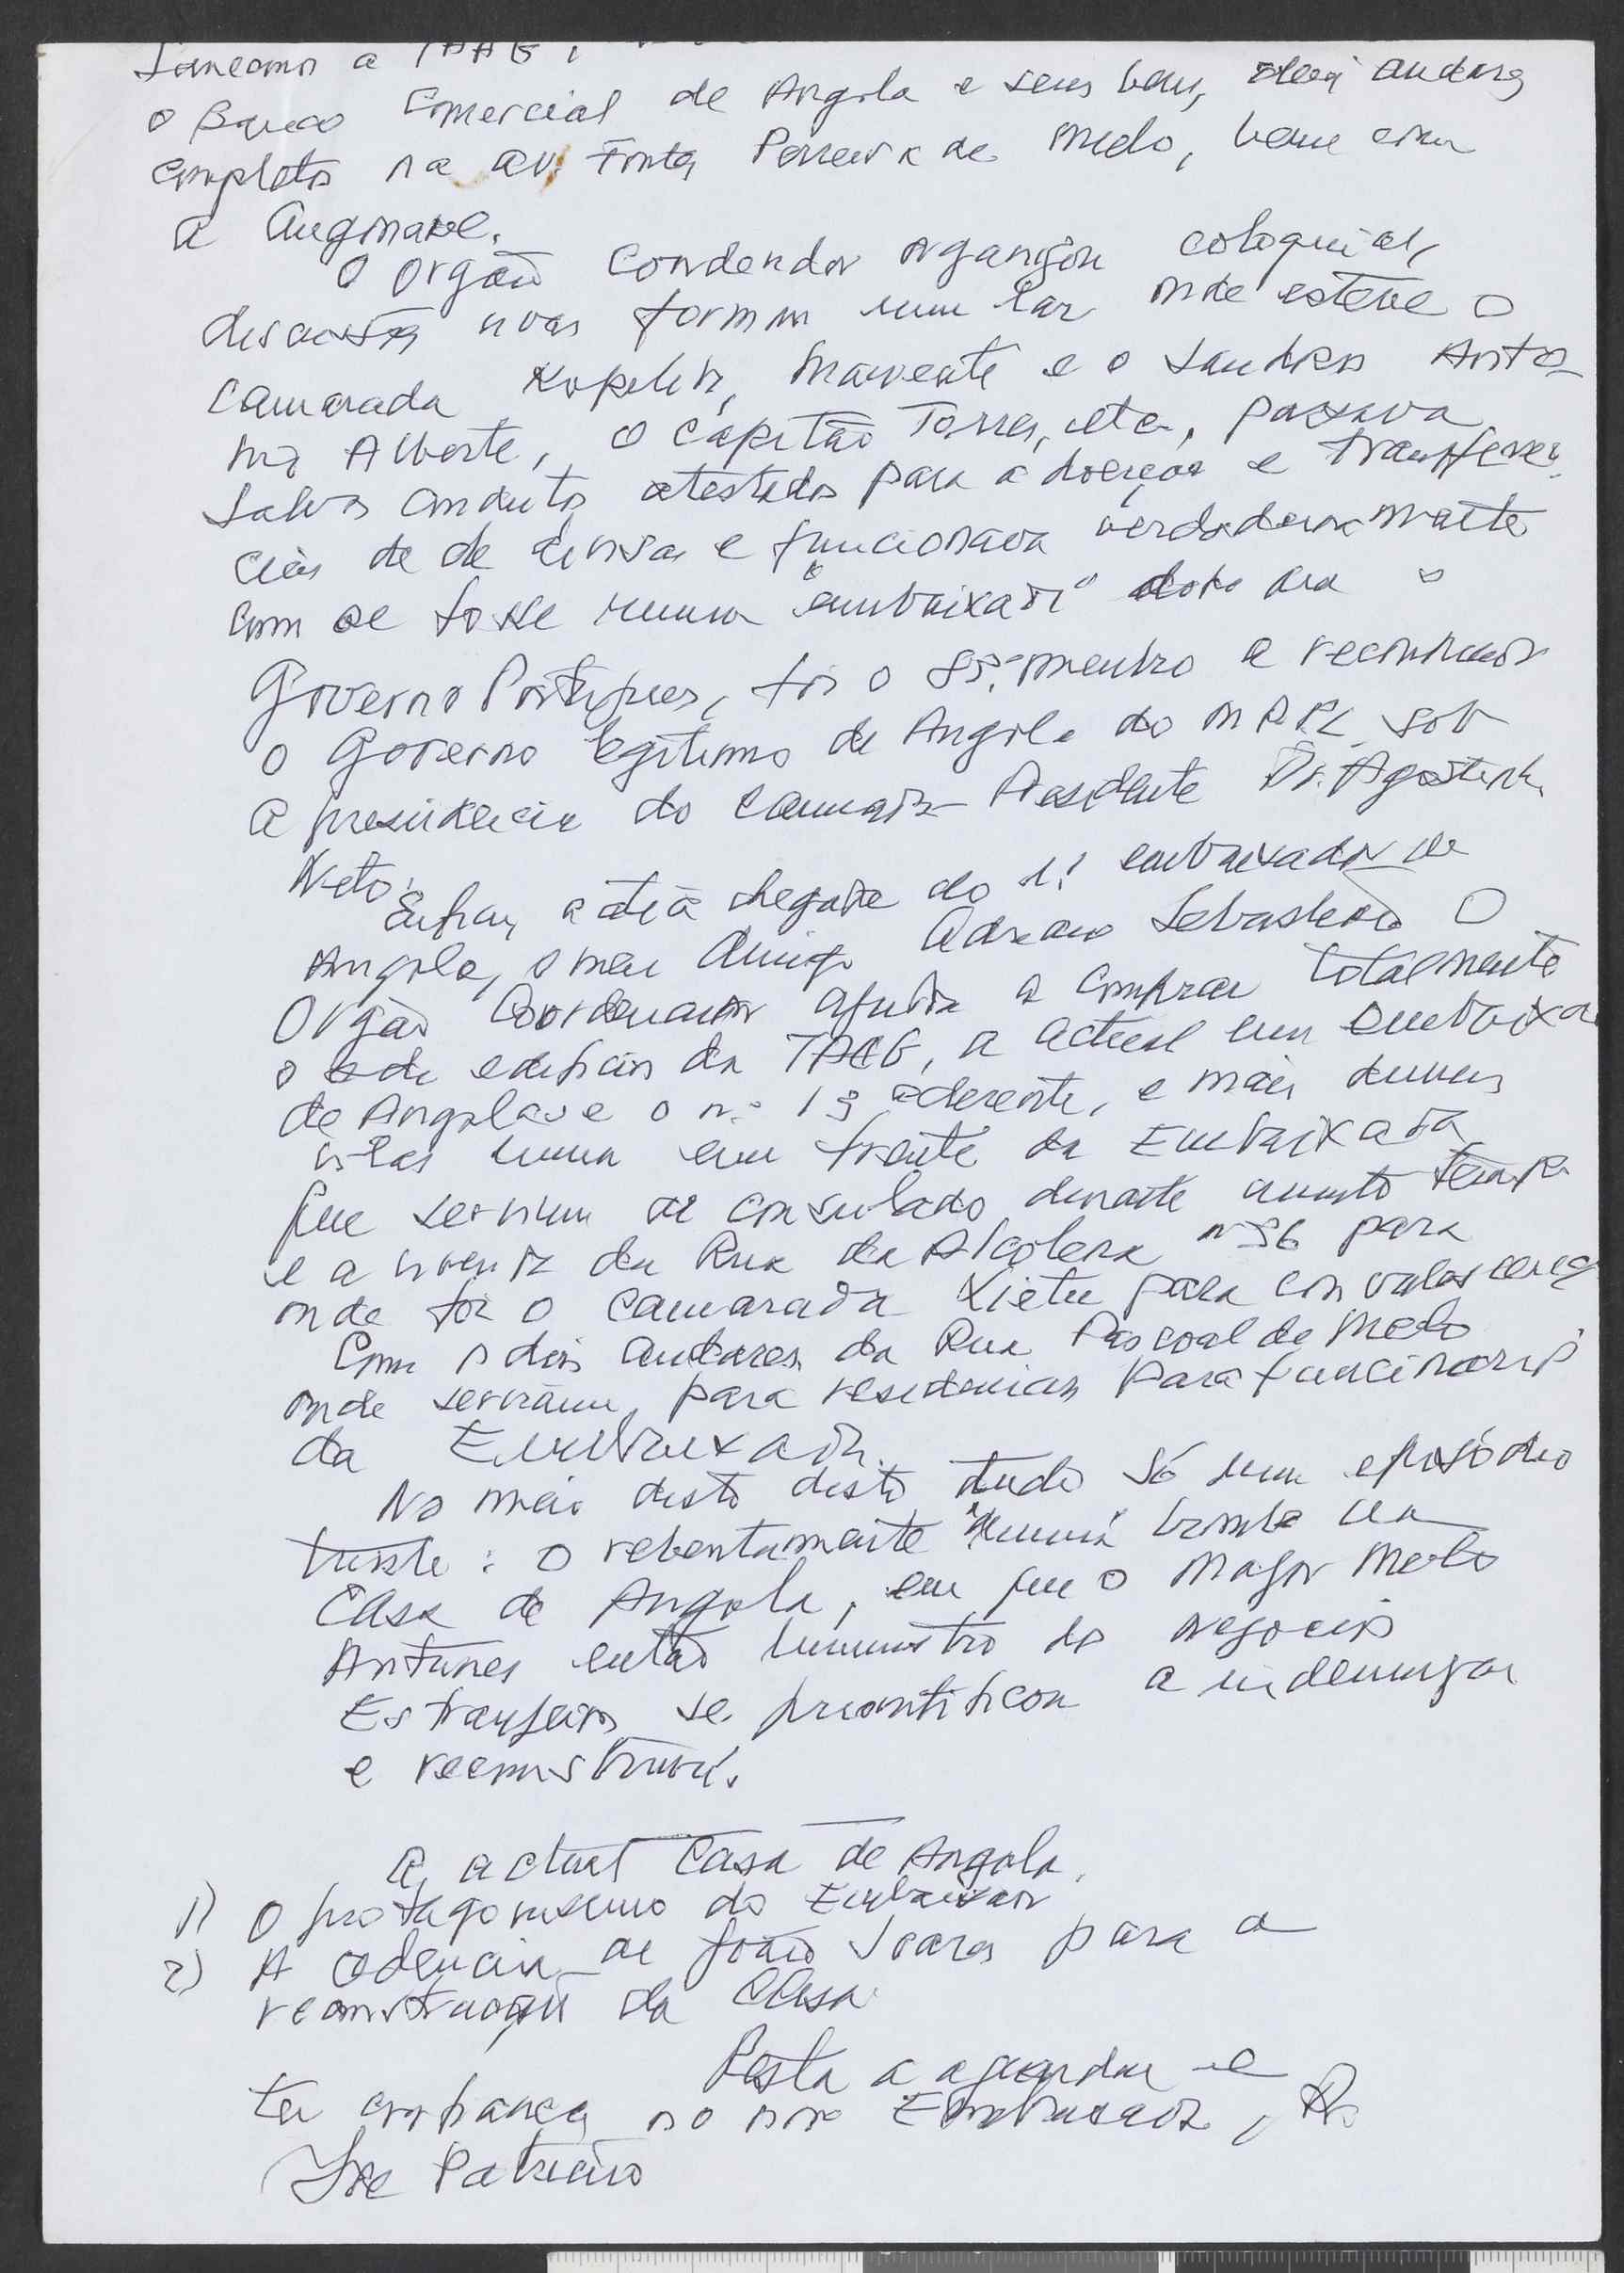 a TAAG,
o Banco Comercial de Angola e seus bens, andares
completos na av. Fontes Pereira de Melo, bem como
a Angonave.
O Orgão Coordenador organizou coloquios,
discussões formou um lar onde esteve o
camarada Kopelipa, e o Santos Antó-
nio Alberto, o capitão Torres, etc, passava
Salvos condutos, atestados para a doenças e transferen-
cias de de divisas e funcionava verdadeiramente
como se fosse numa "embaixada" o
Governo Portugues, foi o 85º membro a reconhecer
o Governo legitimo de Angola do MPPL sob
a presidencia do camarada Presidente Dr. Agostinho
Neto.
Enfim, até à chegada do 1º embaixador de
Angola, o meu amigo Adriano Sebastião O
Orgão Coordenador ajuda a comprar totalmente
o edificios da TAAG, a actual em Embaixada
de Angola e o n.º 13 aderente, e mais dumas
uma em frente da Embaixada
que serviu de consulado durante muito tempo
e a vivenda da Rua da Alcolena nº 36 para
onde foi o camarada Xietu para convalescença
Com os dois andares da Rua Pascoal de Melo
onde serviram, para residencias para funcionarios
da Embaixada.
No meio disto disto tudo só um episódio
triste: o rebentamento "duma" bomba na
Casa de Angola, em que o Major Melo
Antunes então ministro dos negocios
Estrangeiros se prontificou a indemnizar
e reconstruir.
A actual Casa de Angola.
1) O protagonismo do Embaixador
2) A cedencia de João Soares para a
reconstrução da Casa
Resta a aguardar e
ter confiança no novo Embaixador, Dr.
José Patricio